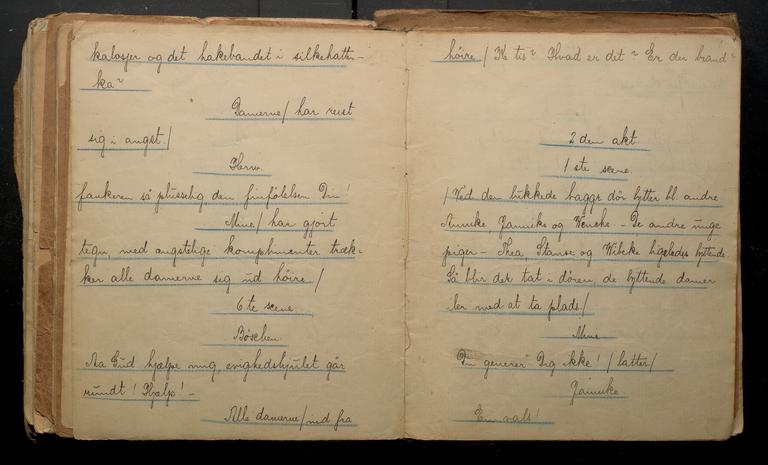 kalosjer og det hakebaandet i silkehatten –
ka?
Damerne / har reist
sig i angst. /
Herm.
fankeren så plusselig den finfölelsen Din!
Mine / har gjort
tegn, med angstelige komplimenter træk-
ker alle damerne sig ud höire. /
6 te scene.
Böschen.
Aa Gud hjælpe mig, evighedshjulet går
rundt! Hjælp! –
Alle damerne / ind fra
höire / Ke tis? Hvad er det? Er der brand?
2 den akt.
1 ste scene.
/ Ved den lukkede baggr dör lytter bl. andre
Annike, Jannike og Wenche – De andre unge
piger – Thea, Stanse og Wibeke ligeledes lyttende.
Så blir det tat i dören, de lyttende damer
iler med at ta plads. /
Mine
Du generer Dig ikke! / latter /
Jannike
En vals!